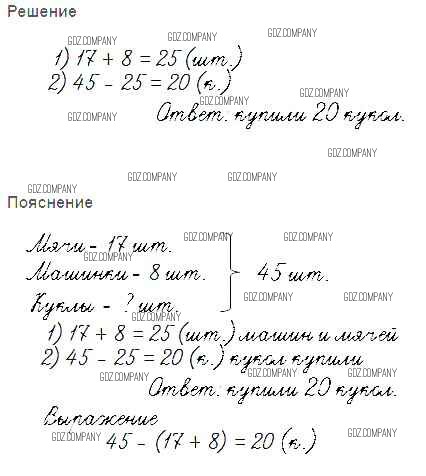 Решение
GDZ.COMPANY GDZ.COMPANY GDZ.COMPANY
1) 17 + 8 = 25 (шт.)
2) 45 - 25 = 20 (к.)
GDZ.COMPANY
GDZ.COMPANY GDZ.COMPANY
Ответ. купили 20 кукол.
GDZ.COMPANY
GDZ.COMPANY GDZ.COMPANY GDZ.COMPANY
Пояснение
GDZ.COMPANY GDZ.COMPANY
Мячи - 17 шт.
Машинки - 8 шт. 45 шт.
GDZ.COMPANY
GDZ.COMPANY GDZ.COMPANY
Куклы - ? шт.
GDZ.COMPANY
1) 17 + 8 = 25 (шт.) машин и мячей
2) 45 - 25 = 20 (к.) кукол купили
GDZ.COMPANY GDZ.COMPANY GDZ.COMPANY
Ответ. купили 20 кукол.
Выпажение
GDZ.COMPANY GDZ.COMPANY
45 - (17 + 8) = 20 (к.)